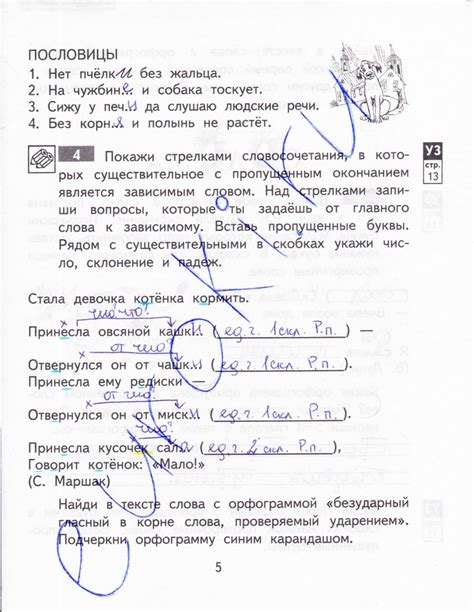 ПОСЛОВИЦЫ
1. Нет пчёлки без жальца.
2. На чужбине и собака тоскует.
3. Сижу у печи да слушаю людские речи.
4. Без корня и полынь не растёт.
4 Покажи стрелками словосочетания, в кото-
рых существительное с пропущенным окончанием
является зависимым словом. Над стрелками запи-
ши вопросы, которые ты задаёшь от главного
слова к зависимому. Вставь пропущенные буквы.
Рядом с существительными в скобках укажи чис-
ло, склонение и падеж.
УЗ
стр.
13
Стала девочка котёнка кормить.
Принесла овсяной кашки (ед.ч. 1скл. Р.п.) —
от чего?
Отвернулся он от чашки (ед.г. 1скл. Р.п.)
Принесла ему редиски —
от чего?
Отвернулся он от миски (ед.г. 1скл. Р.п.)
Принесла кусочек сала (ед.г. 2скл. Р.п.)
Говорит котёнок: «Мало!»
(С. Маршак)
Найди в тексте слова с орфограммой «безударный
гласный в корне слова, проверяемый ударением».
Подчеркни орфограмму синим карандашом.
5